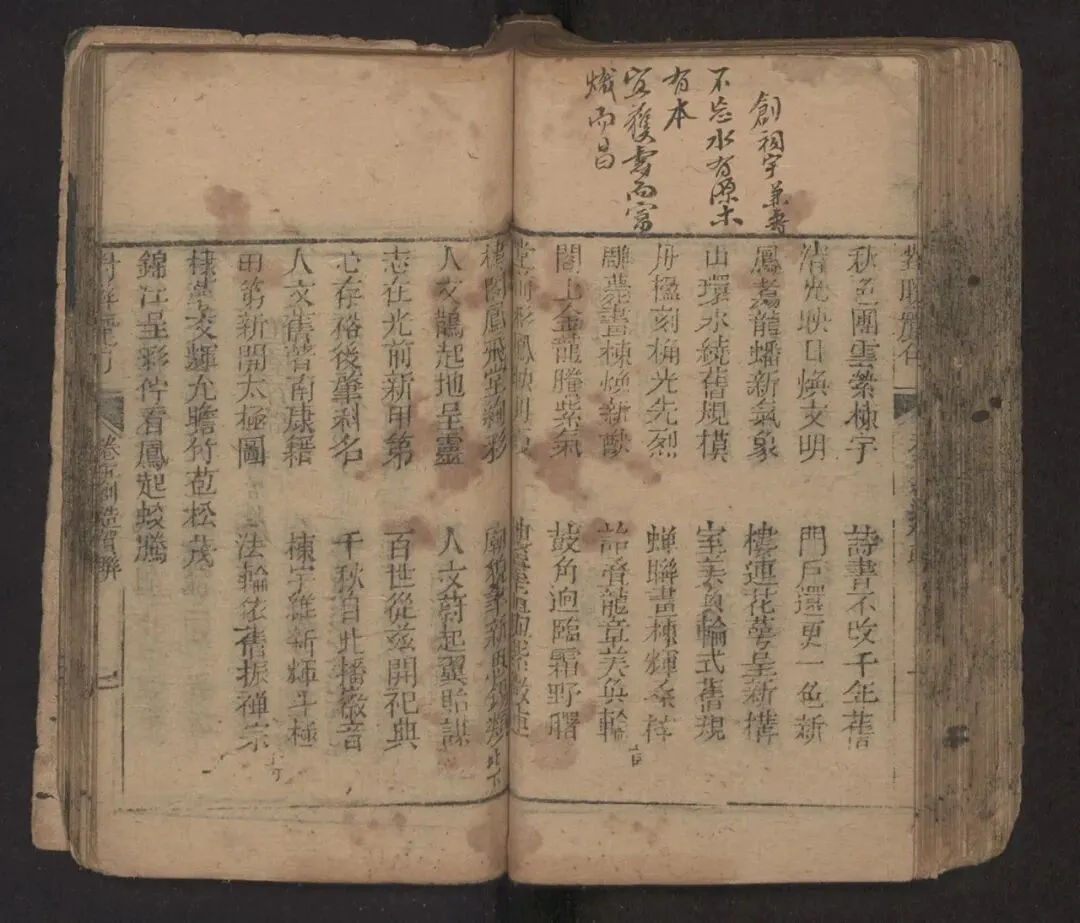 創祠宇兼壽
不忘水有源木
有本
宜獲壽而富
熾而昌
秋色團雲縈棟宇 詩書不改千年舊
清光映日煥文明 門戶還更一色新
鳳翥龍蟠新氣象 樓連花萼呈新構
山環水繞舊規模 室美奐輪式舊規
丹楹刻桷光先烈 蟬聯畫棟輝
雕甍畫棟煥新猷 詒龍章美奐輪
閣上金龍騰紫氣 鼓角迥臨霜野曙
樓閣鳳飛堂絢彩
人文鵲起地呈靈 人文蔚起翼貽謀
志在光前新甲第 百世從茲開祀典
心存裕後肇科名 千秋自此播徽音
人文舊著南康籍 棟宇維新輝斗極
甲第新開太極圖 法輪依舊振禪宗
棣萼交輝允瞻竹苞松茂
錦江呈彩佇看鳳起蛟騰
創造賀聯